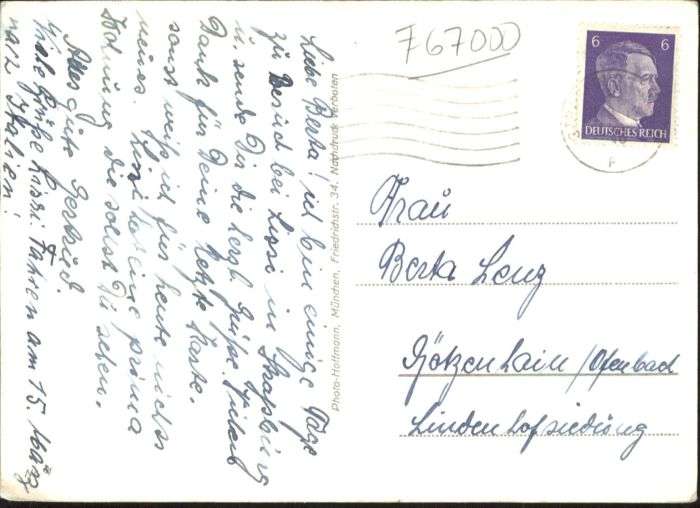 Liebe Berta! ich bin einige Tage
zu Besuch bei Lissi in Straßburg
u. sende Dir die herzl. Grüße. Vielen
Dank für Deine letzte Karte.
sonst weiß ich für heute nichts
neues. Lissi hat eine prima
Wohnung die sollst Du sehen.
Alles gute Gertrud.
Viele Grüße Lissi Fahren am 15. März
nach Italien!
Photo-Hoffmann, München, Friedrichstr. 34, Nachdruck verboten
767000
6 6
DEUTSCHES REICH
Frau
Berta Lenz
Götzenhain/Ofenbach
Lindenhofsiedlung